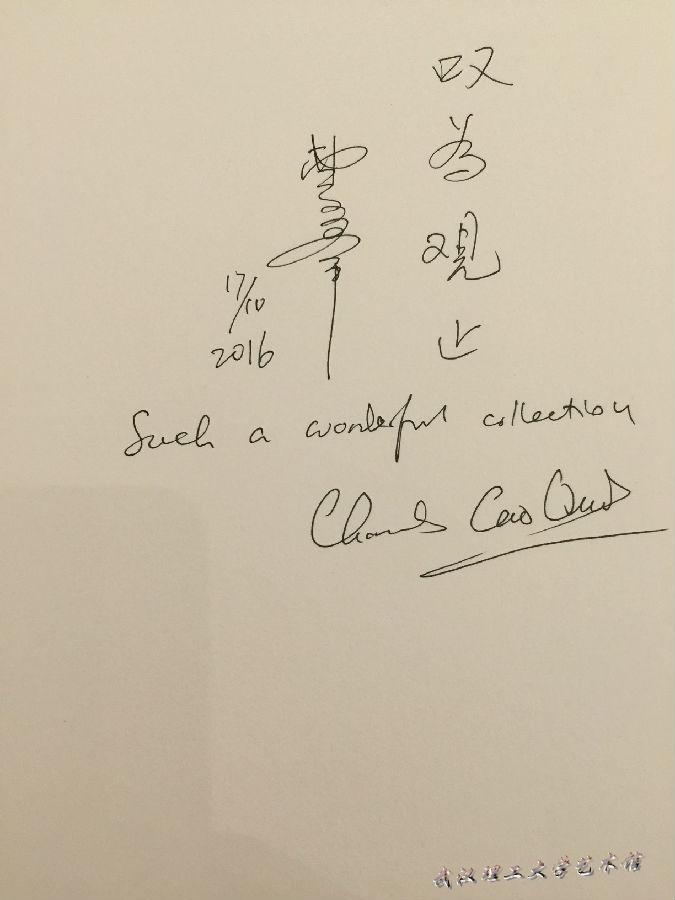 叹为观止
17/10
2016
Such a wonderful collection
武汉理工大学艺术馆